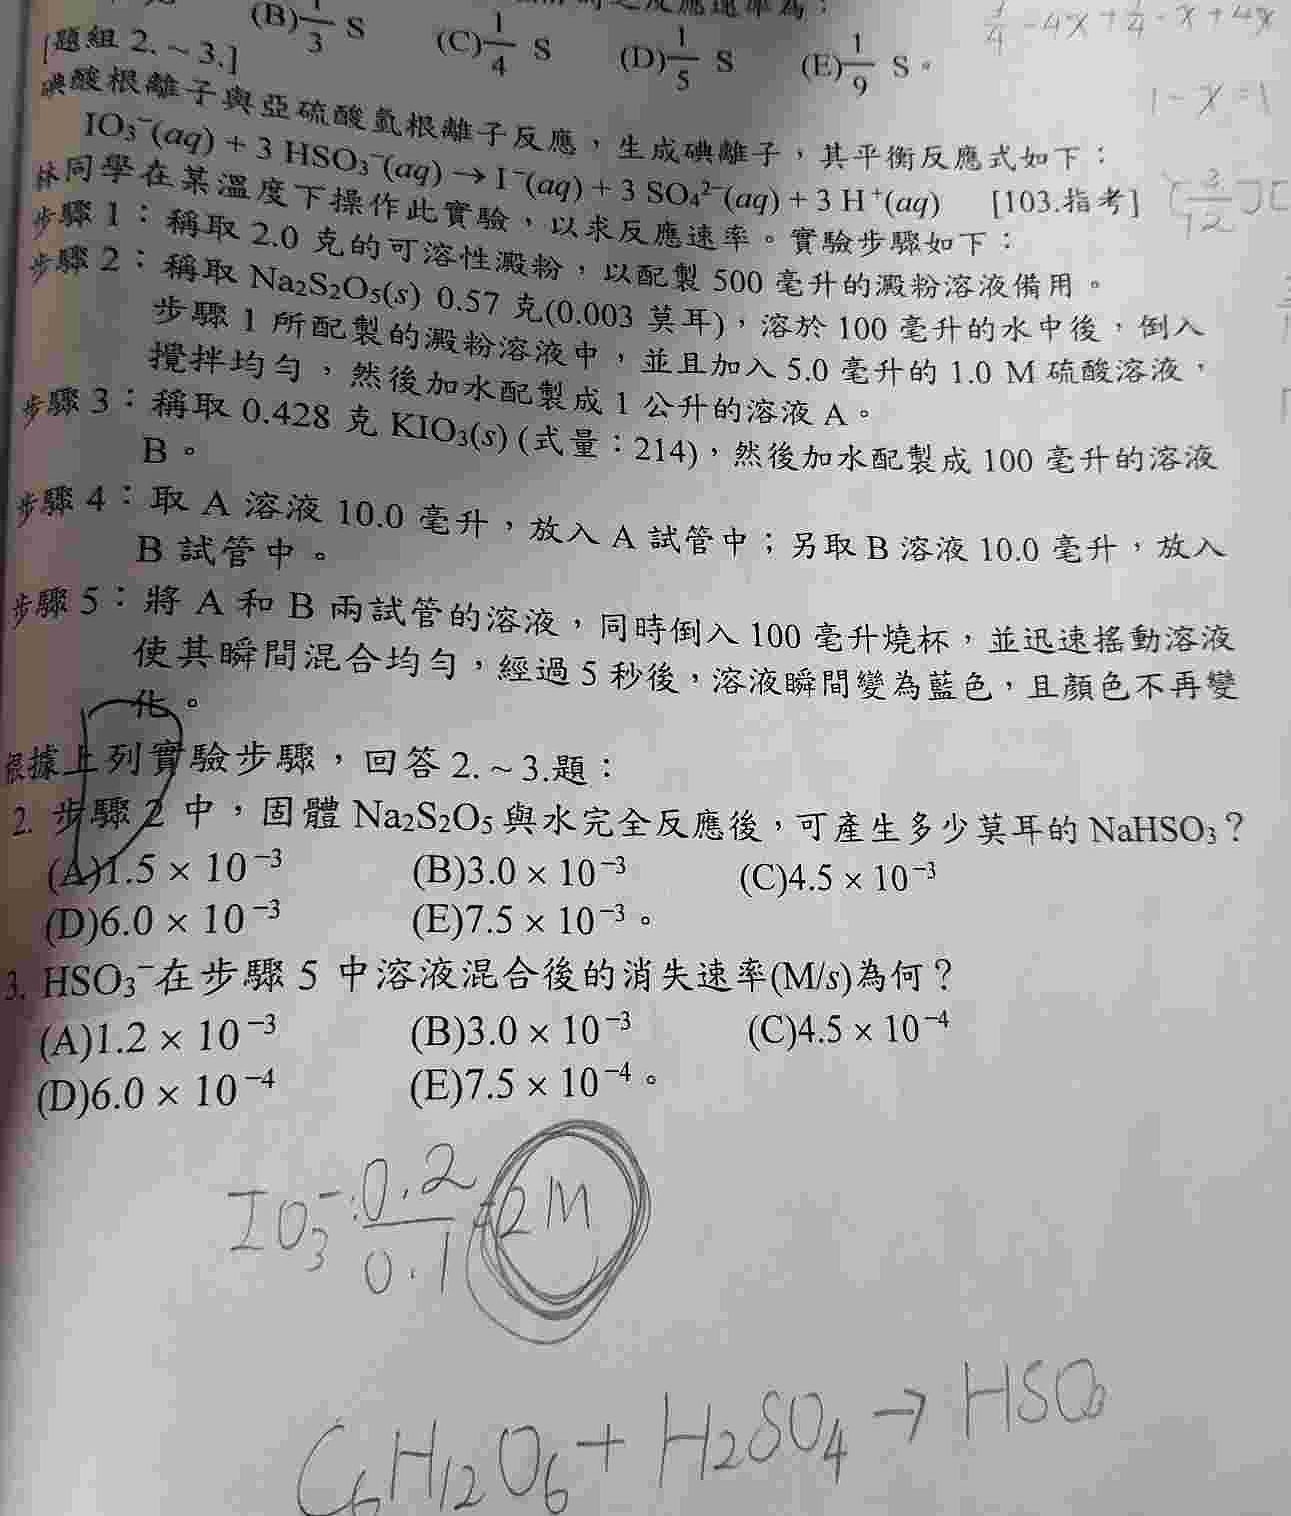 (B)1/3 S (C)1/4 S (D)1/5 S (E)1/9 S。
[題組 2. ~ 3.]
碘酸根離子與亞硫酸氫根離子反應，生成碘離子，其平衡反應式如下：
IO₃⁻(aq) + 3 HSO₃⁻(aq) → I⁻(aq) + 3 SO₄²⁻(aq) + 3 H⁺(aq) [103.指考]
林同學在某溫度下操作此實驗，以求反應速率。實驗步驟如下：
步驟 1：稱取 2.0 克的可溶性澱粉，以配製 500 毫升的澱粉溶液備用。
步驟 2：稱取 Na₂S₂O₅(s) 0.57 克(0.003 莫耳)，溶於 100 毫升的水中後，倒入
步驟 1 所配製的澱粉溶液中，並且加入 5.0 毫升的 1.0 M 硫酸溶液，
攪拌均勻，然後加水配製成 1 公升的溶液 A。
步驟 3：稱取 0.428 克 KIO₃(s) (式量：214)，然後加水配製成 100 毫升的溶液
B。
步驟 4：取 A 溶液 10.0 毫升，放入 A 試管中；另取 B 溶液 10.0 毫升，放入
B 試管中。
步驟 5：將 A 和 B 兩試管的溶液，同時倒入 100 毫升燒杯，並迅速搖動溶液
使其瞬間混合均勻，經過 5 秒後，溶液瞬間變為藍色，且顏色不再變
化。
根據上列實驗步驟，回答 2. ~ 3.題：
2. 步驟 2 中，固體 Na₂S₂O₅ 與水完全反應後，可產生多少莫耳的 NaHSO₃？
(A)1.5 × 10⁻³ (B)3.0 × 10⁻³ (C)4.5 × 10⁻³
(D)6.0 × 10⁻³ (E)7.5 × 10⁻³。
3. HSO₃⁻在步驟 5 中溶液混合後的消失速率(M/s)為何？
(A)1.2 × 10⁻³ (B)3.0 × 10⁻³ (C)4.5 × 10⁻⁴
(D)6.0 × 10⁻⁴ (E)7.5 × 10⁻⁴。
IO₃⁻: 0.2/0.1 = 2M
C₆H₁₂O₆ + H₂SO₄ → HSO₃